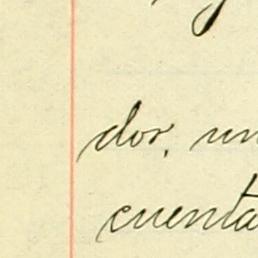 dor, un
cuenta